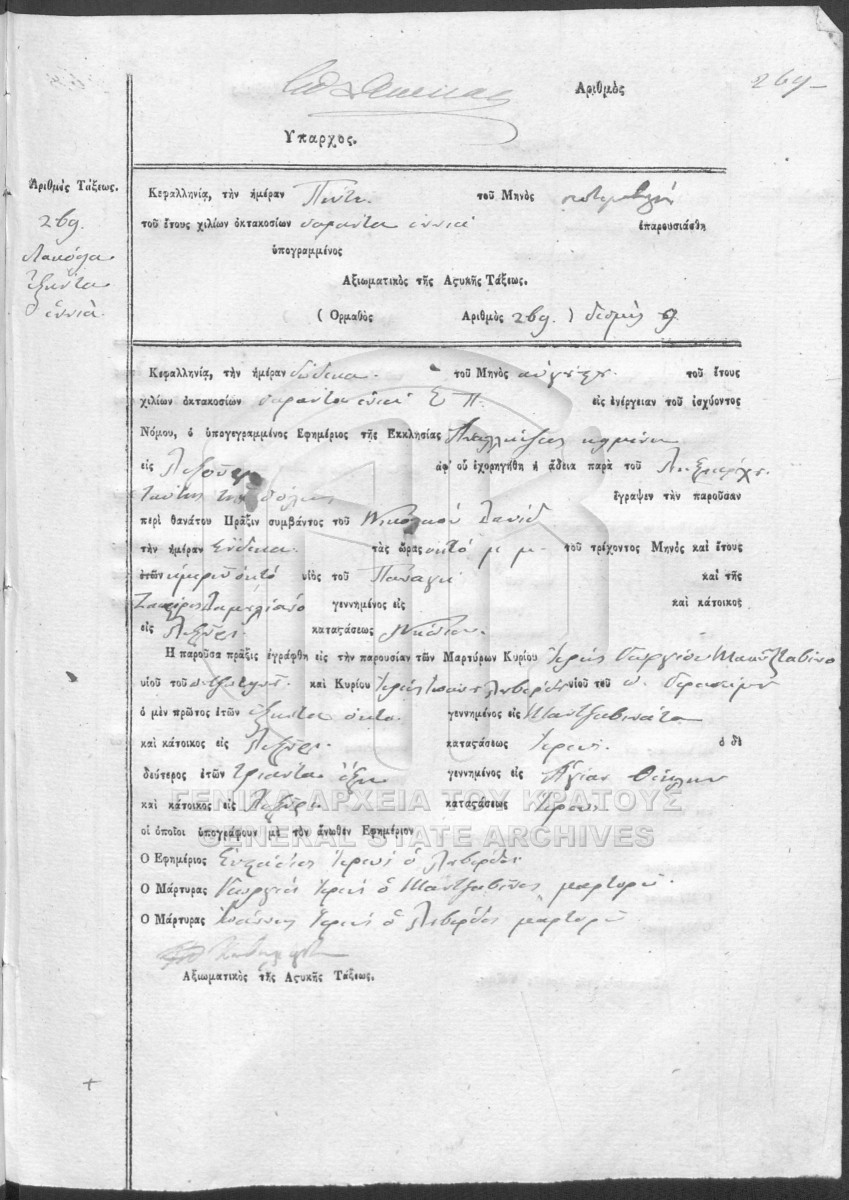 Ἀριθμὸς 269
Ὕπαρχος.
Ἀριθμὸς Τάξεως.
269.
διακόσια
ἑξῆντα
ἐννιὰ
Κεφαλληνίᾳ, τὴν ἡμέραν Πέντε τοῦ Μηνὸς
τοῦ ἔτους χιλίων ὀκτακοσίων σαράντα ἐννιὰ ἐπαρουσιάσθη
ὑπογραμμένος
Ἀξιωματικὸς τῆς Ἀστυκῆς Τάξεως.
( Ὁρμαθὸς Ἀριθμὸς 269. )
Κεφαλληνίᾳ, τὴν ἡμέραν δώδεκα. τοῦ Μηνὸς αὐγούστου. τοῦ ἔτους
χιλίων ὀκτακοσίων σαράντα ἐννιὰ Ε. Π. εἰς ἐνέργειαν τοῦ ἰσχύοντος
Νόμου, ὁ ὑπογεγραμμένος Ἐφημέριος τῆς Ἐκκλησίας
εἰς Ληξούρι ἀφ' οὗ ἐχορηγήθη ἡ ἄδεια παρὰ τοῦ
ταύτης τῆς πόλεως ἔγραψεν τὴν παροῦσαν
περὶ θανάτου Πρᾶξιν συμβάντος τοῦ Νικολάου Δανὶδ
τὴν ἡμέραν ἕνδεκα. τὰς ὥρας ὀκτὸ μ μ. τοῦ τρέχοντος Μηνὸς καὶ ἔτους
ἐτῶν ἡμερῶν ὀκτὸ υἱὸς τοῦ Παναγῆ καὶ τῆς
γεννημένος εἰς καὶ κάτοικος
εἰς Ληξούρι. καταστάσεως
Ἡ παροῦσα πρᾶξις ἐγράφθη εἰς τὴν παρουσίαν τῶν Μαρτύρων Κυρίου Ἱερεὺς Γεωργίου Μαντζαβίνο
υἱοῦ τοῦ καὶ Κυρίου Ἱερεὺς Ἰωάννης υἱοῦ τοῦ
ὁ μὲν πρῶτος ἐτῶν ἑξῆντα ὀκτὸ. γεννημένος εἰς Μαντζαβινάτα
καὶ κάτοικος εἰς Ληξούρι. καταστάσεως Ἱερεὺς. ὁ δὲ
δεύτερος ἐτῶν τριάντα ἕξη γεννημένος εἰς Ἁγίαν Θέκλην
καὶ κάτοικος εἰς Ληξούρι. καταστάσεως Ἱερεὺς
οἱ ὁποῖοι ὑπογράφουν μὲ τὸν ἄνωθεν Ἐφημέριον
Ὁ Ἐφημέριος Εὐστάθιος Ἱερεὺς ὁ
Ὁ Μάρτυρας Γεώργιος Ἱερεὺς ὁ Μαντζαβῖνος μαρτυρῶ.
Ὁ Μάρτυρας Ἰωάννης Ἱερεὺς ὁ μαρτυρῶ
Ἀξιωματικὸς τῆς Ἀστυκῆς Τάξεως.
ΓΕΝΙΚΑ ΑΡΧΕΙΑ ΤΟΥ ΚΡΑΤΟΥΣ
GENERAL STATE ARCHIVES